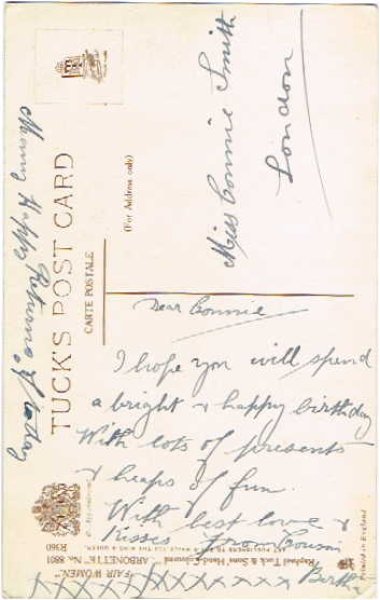 TUCK'S POST CARD
CARTE POSTALE
(For Address only)
Miss Connie Smith
London
Many Happy Returns of to day
Dear Connie
I hope you will spend
a bright & happy birthday
With lots of presents
& heaps of fun.
With best love &
Kisses from Cousin
Bertha
xxxxxxxxxxxxxxxxx
Raphael Tuck & Sons' Hand-Coloured
"FAIR WOMEN."
"ARBONETTE," No. 8801
ART PUBLISHERS TO THE KING & QUEEN.
R360
Printed in England